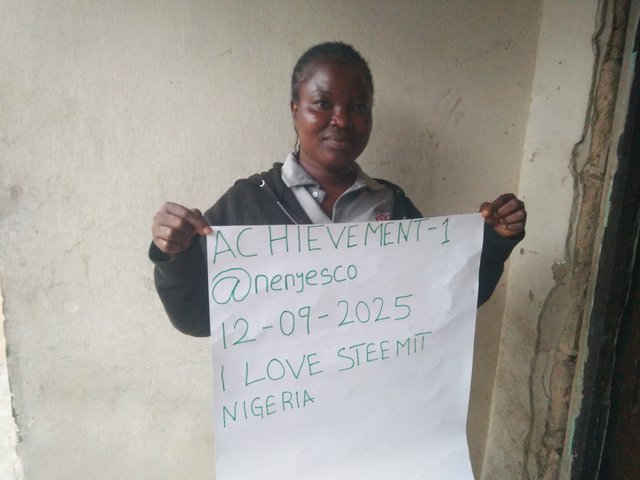 ACHIEVEMENT-1
@nenyesco
12-09-2025
I LOVE STEEMIT
NIGERIA